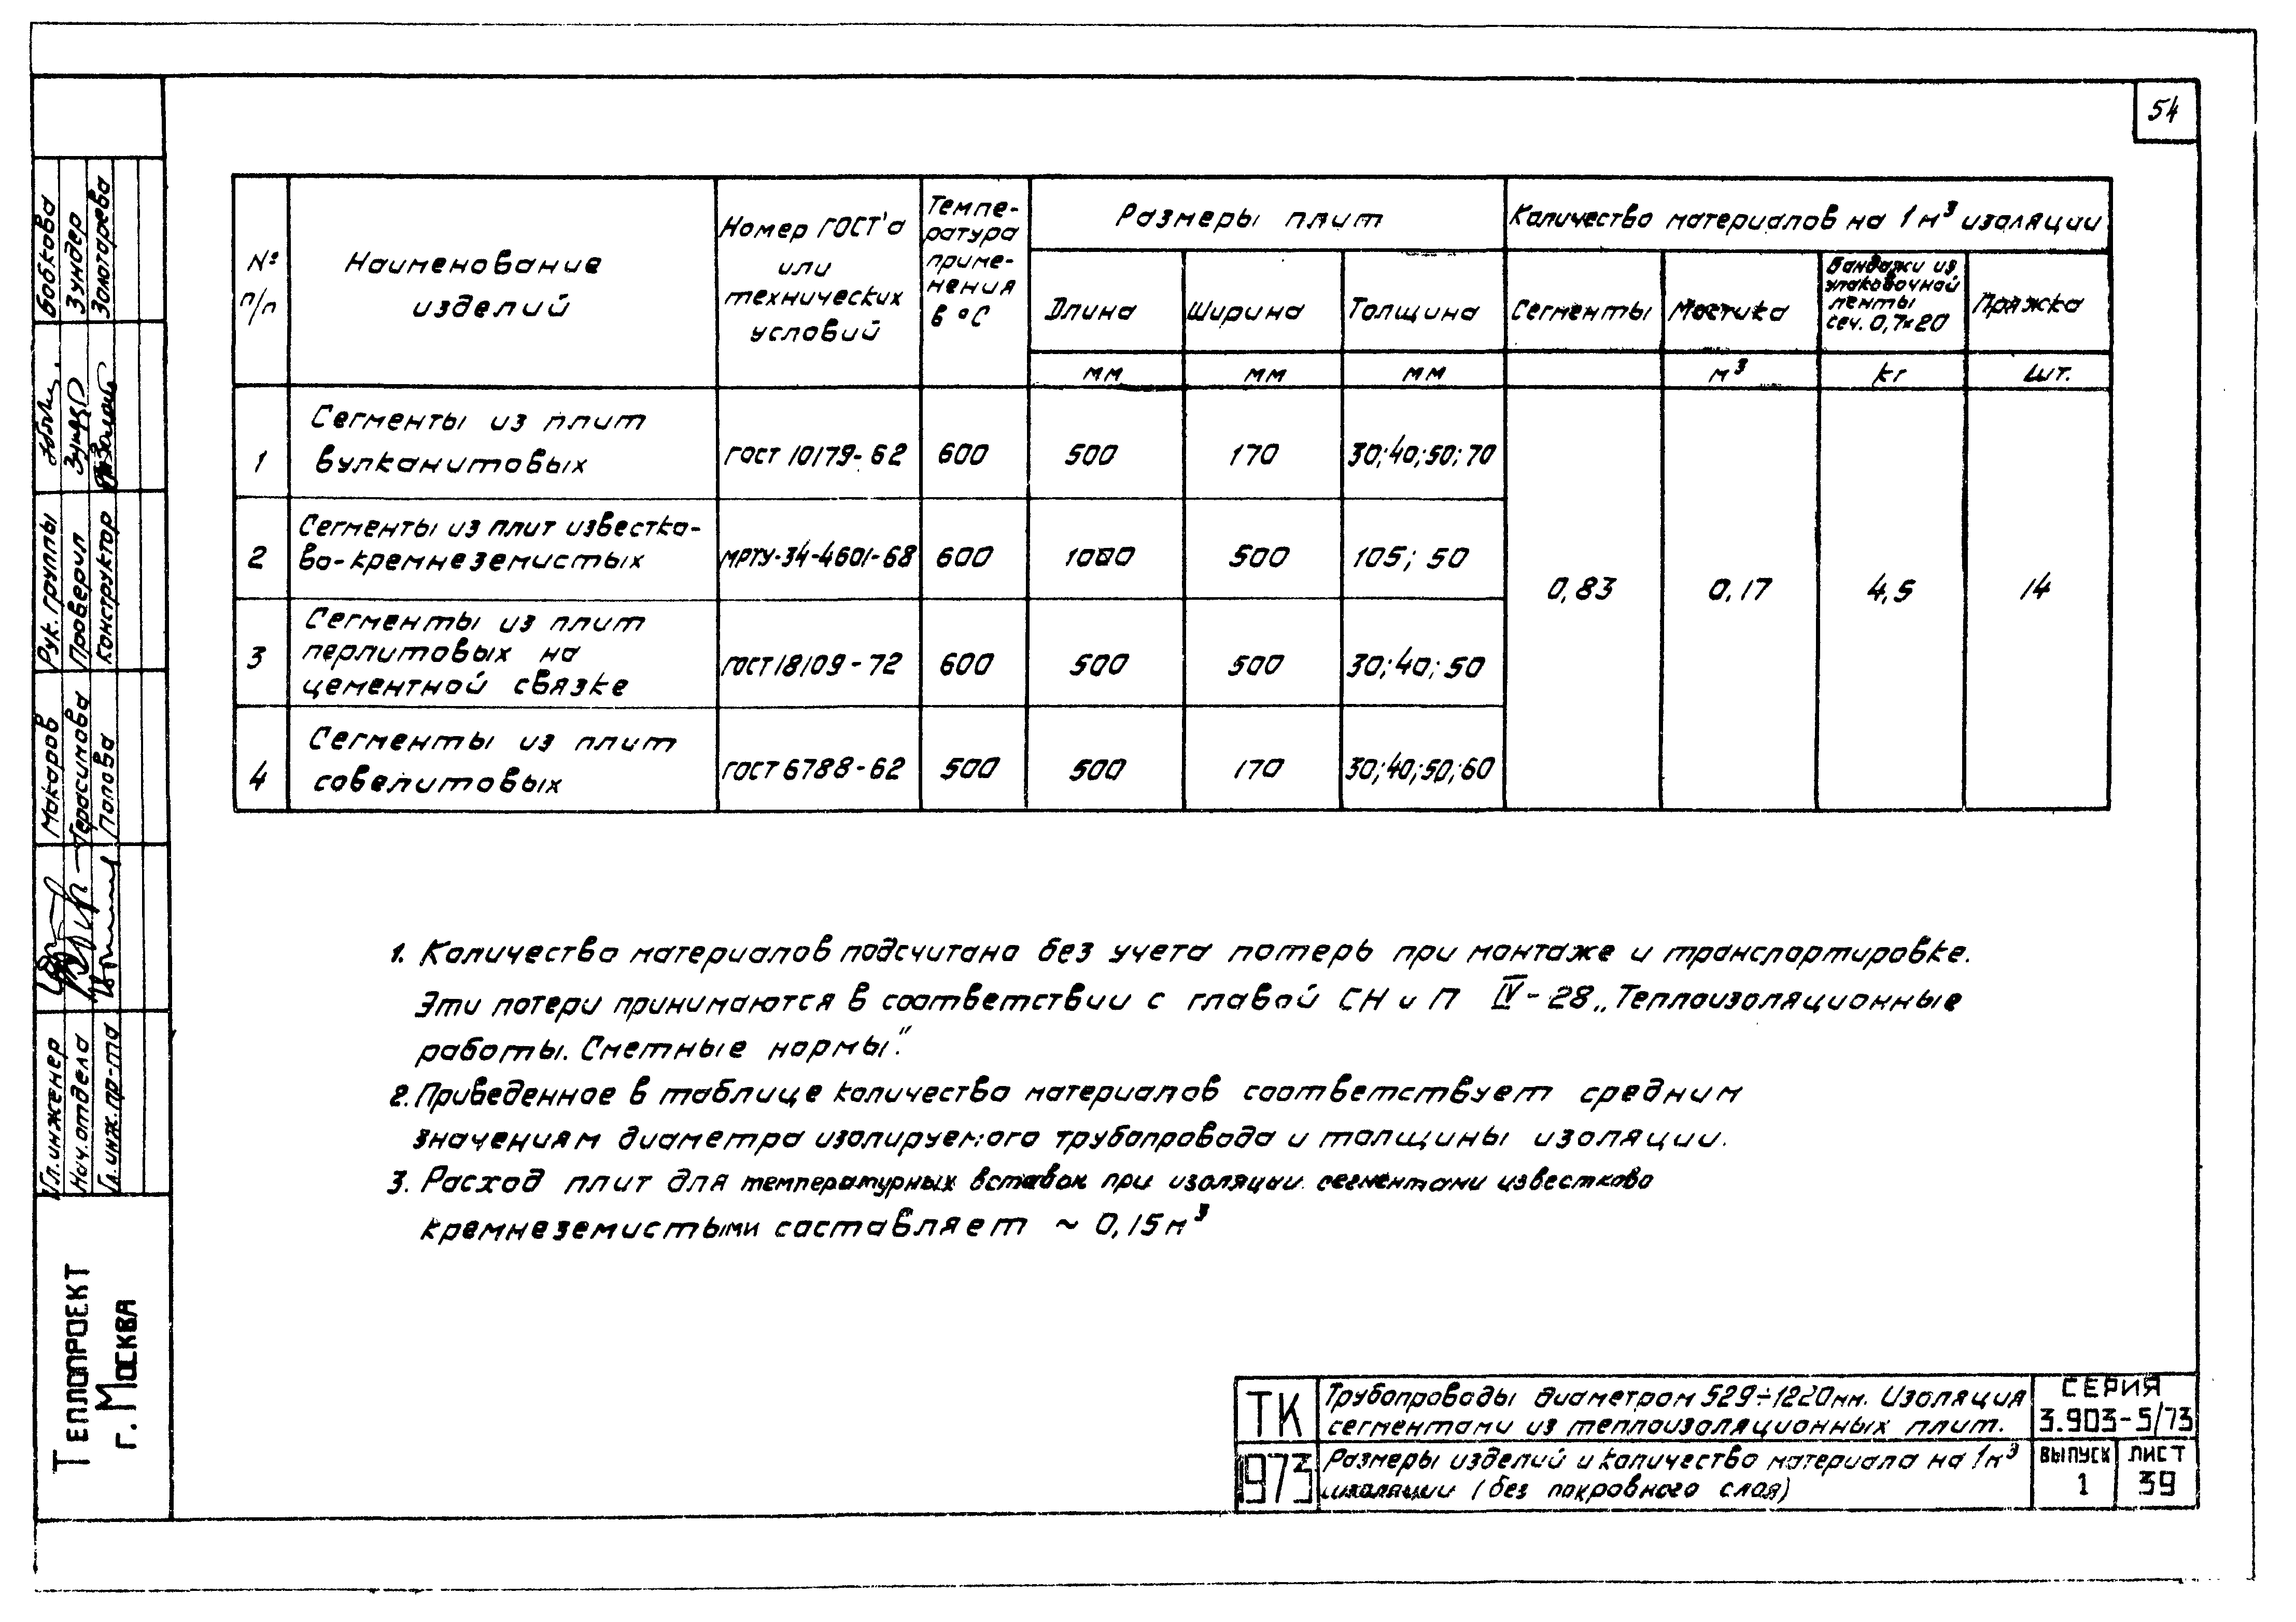 54
№ п/п
Наименование изделий
Номер ГОСТ'а или технических условий
Темпе-ратура приме-нения в °C
Размеры плит
Количество материалов на 1 м³ изоляции
Длина
Ширина
Толщина
Сегменты
Мастика
Бандажи из упаковочной ленты сеч. 0,7×20
Пряжка
мм
мм
мм
м³
кг
шт.
1 Сегменты из плит вулканитовых ГОСТ 10179-62 600 500 170 30;40;50;70
2 Сегменты из плит известка-во-кремнеземистых МРТУ-34-4601-68 600 1000 500 105; 50
3 Сегменты из плит перлитовых на цементной связке ГОСТ 18109-72 600 500 500 30;40;50
4 Сегменты из плит совелитовых ГОСТ 6788-62 500 500 170 30;40;50;60
0,83 0,17 4,5 14
1. Количество материалов подсчитано без учета потерь при монтаже и транспортировке.
Эти потери принимаются в соответствии с главой СН и П IV-28 „Теплоизоляционные
работы. Сметные нормы".
2. Приведенное в таблице количество материалов соответствует средним
значениям диаметра изолируемого трубопровода и толщины изоляции.
3. Расход плит для температурных вставок при изоляции сегментами известково
кремнеземистыми составляет ~ 0,15 м³
Гл. инженер Макаров
Нач. отдела Герасимова
Гл. инж. пр-та Попова
Рук. группы Бобкова
Проверил Зундер
Конструктор Золотарева
Теплопроект
г. Москва
ТК
1973
Трубопроводы диаметром 529÷1220мм. Изоляция
сегментами из теплоизоляционных плит.
Размеры изделий и количество материала на 1м³
изоляции (без покровного слоя)
СЕРИЯ
3.903-5/73
ВЫПУСК
1
ЛИСТ
39